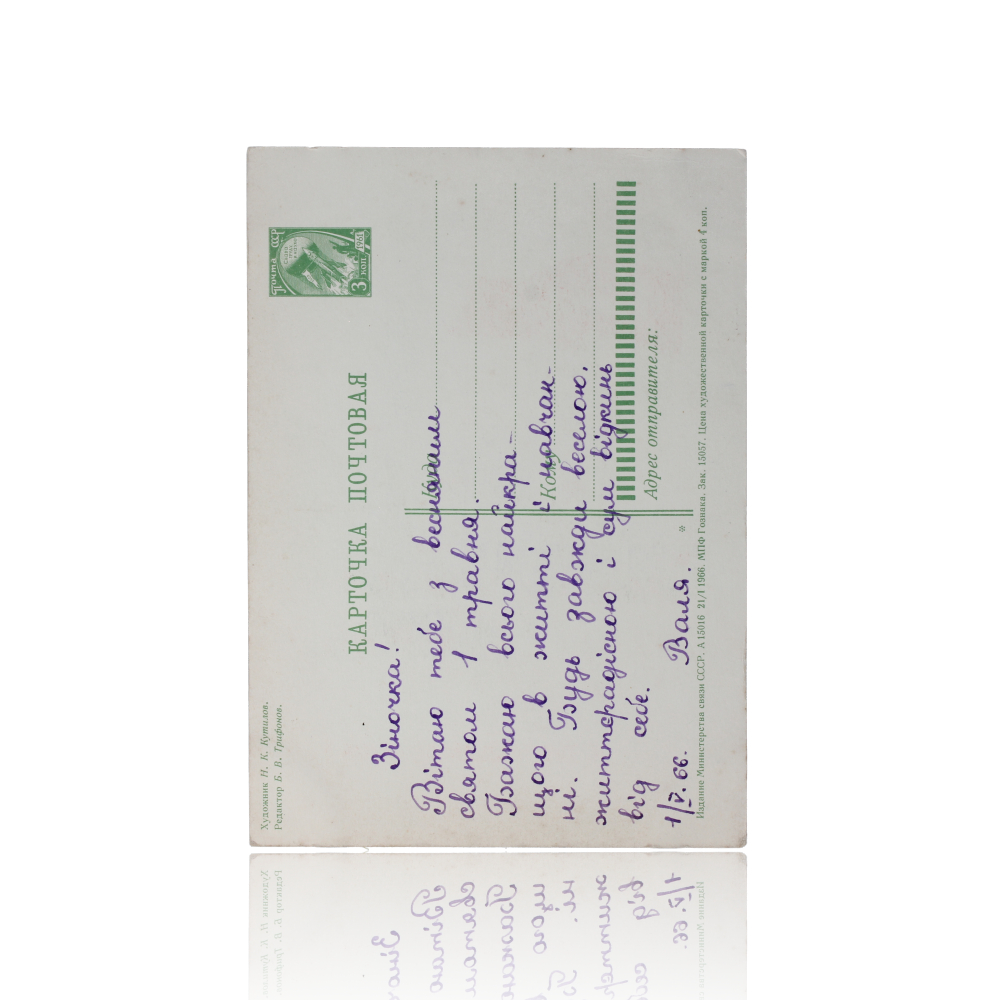 Художник Н. К. Кутилов.
Редактор Б. В. Трифонов.
Почта СССР
1961
3 коп.
КАРТОЧКА ПОЧТОВАЯ
Зіночка!
Вітаю тебе з весняним
святом 1 травня.
Бажаю всього найкра-
щого в житті і навчан-
ні. Будь завжди веселою,
життєрадісною і сум відкинь
від себе.
1/V. 66. Валя.
Куда
Кому
Адрес отправителя:
Издание Министерства связи СССР. А 15016 21/I 1966. МПФ Гознака. Зак. 15057. Цена художественной карточки с маркой 4 коп.